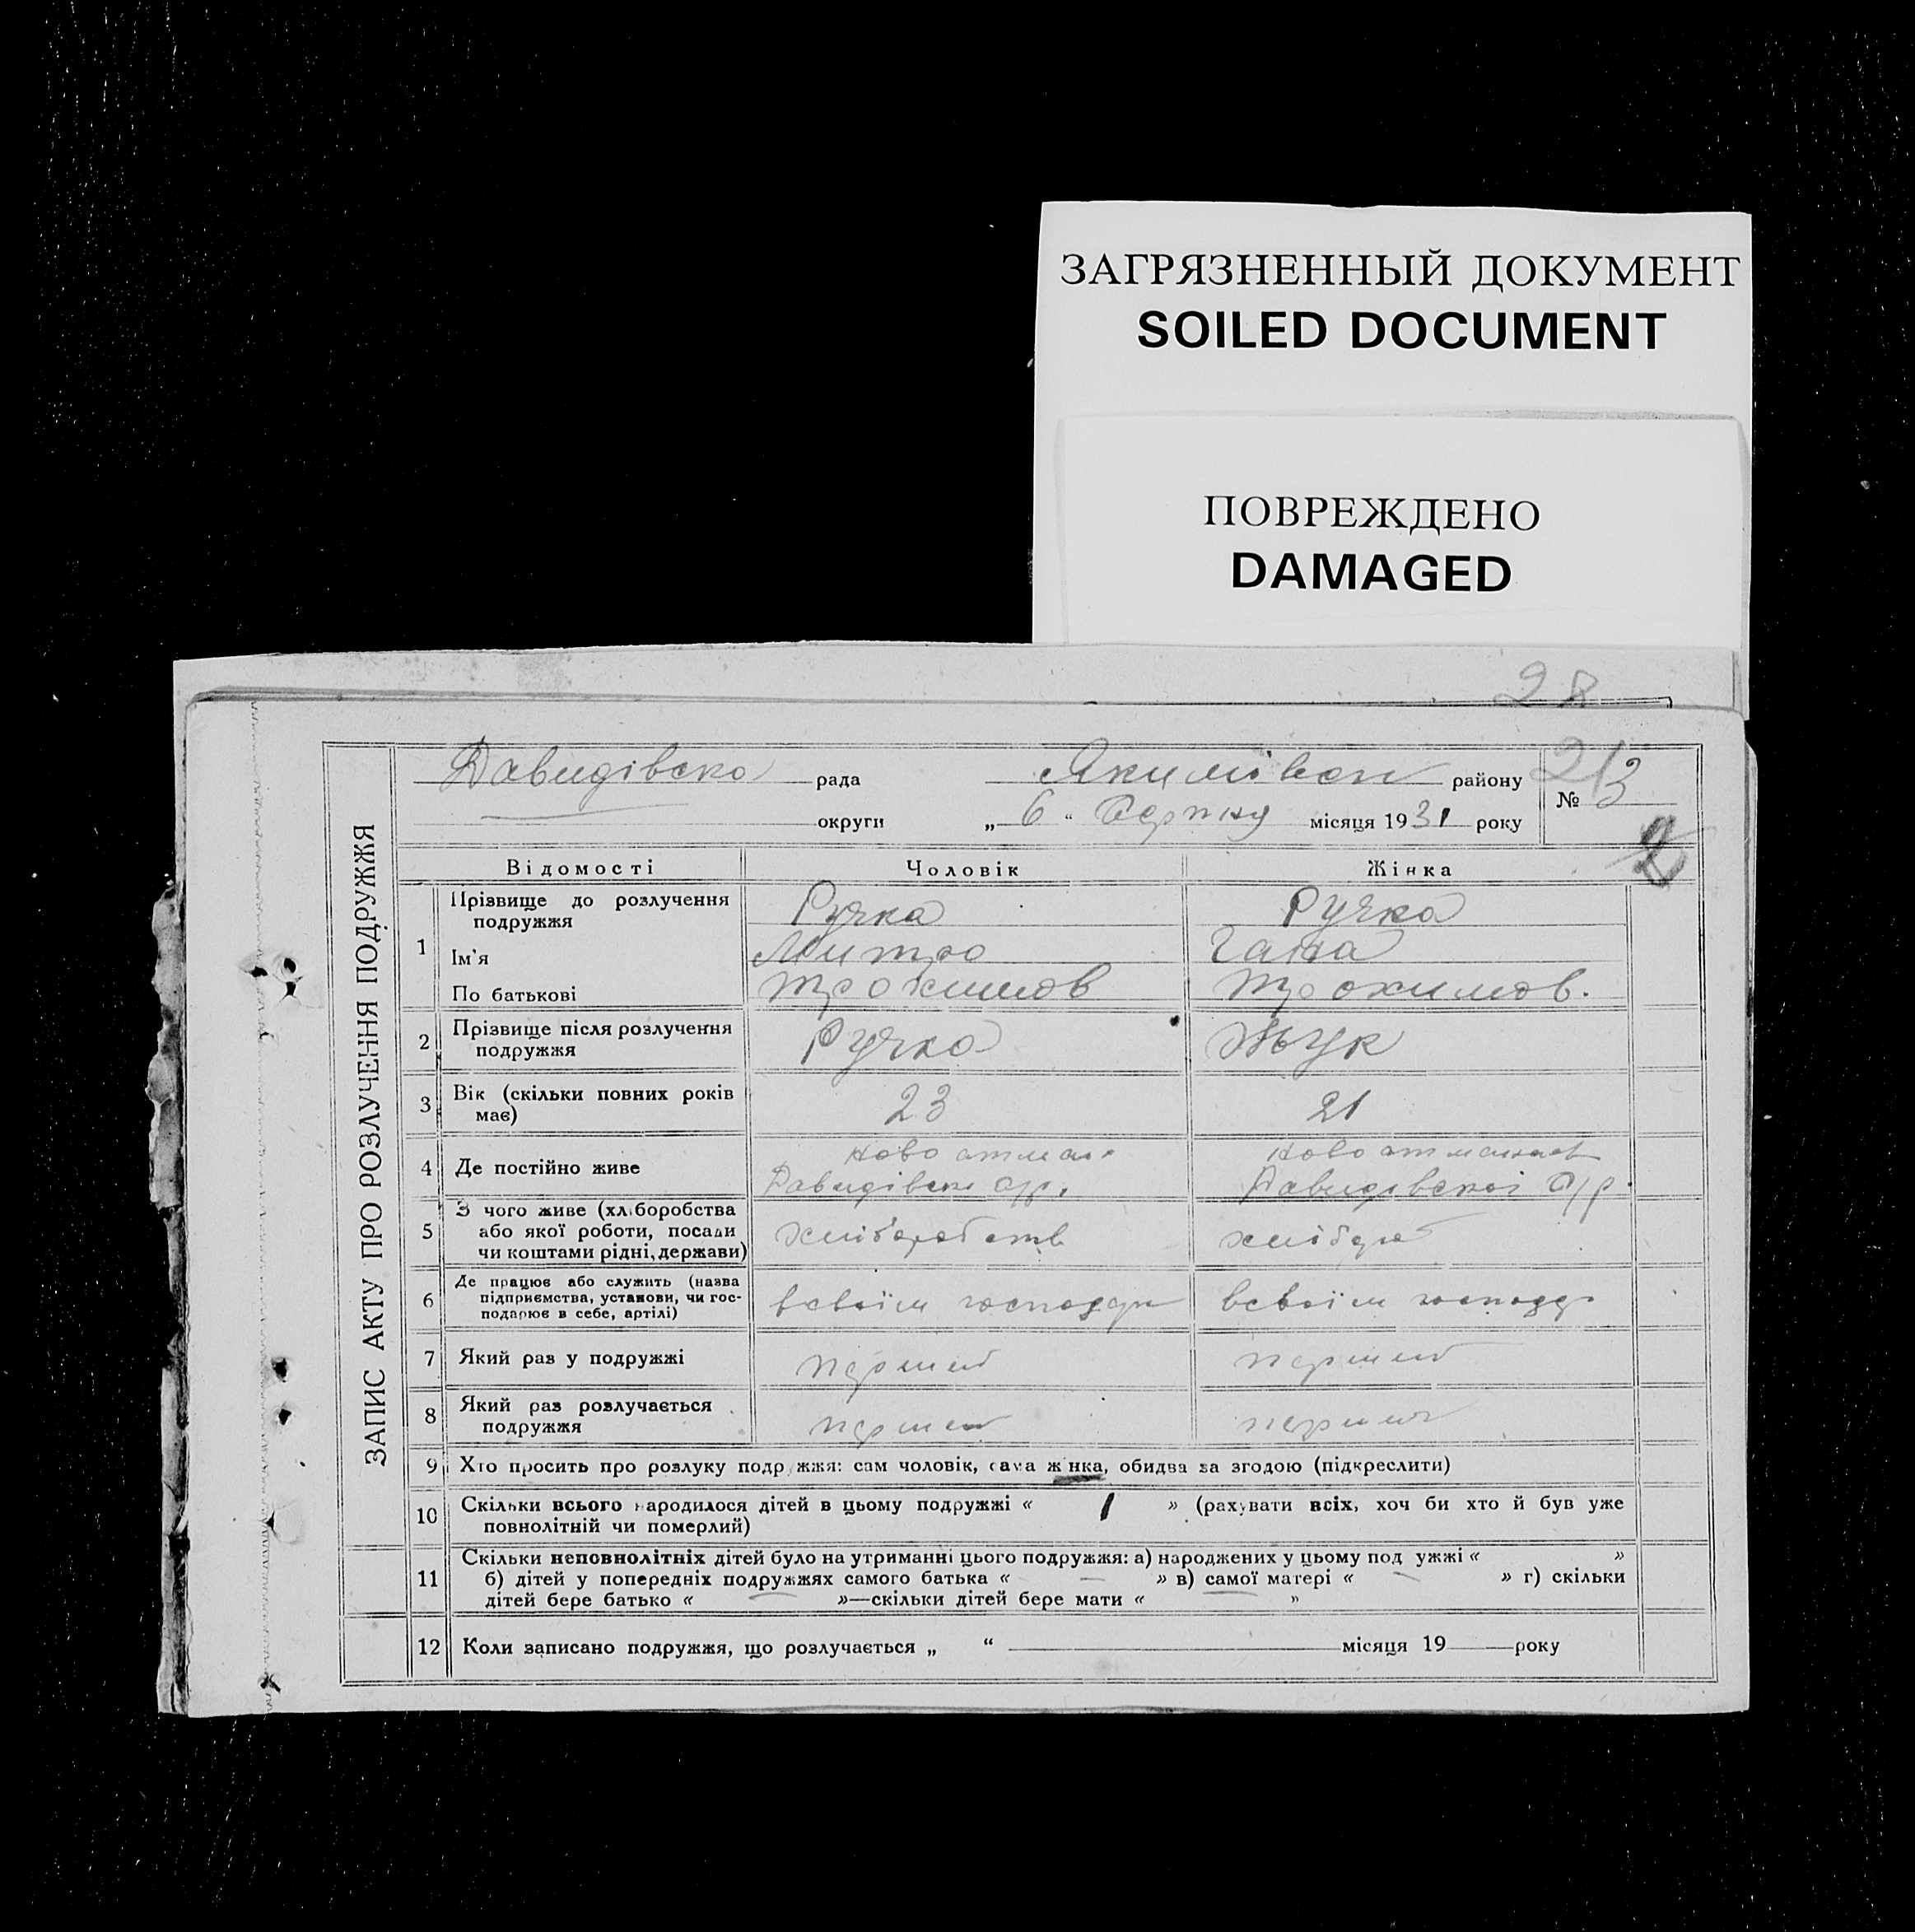 ЗАГРЯЗНЕННЫЙ ДОКУМЕНТ
SOILED DOCUMENT
ПОВРЕЖДЕНО
DAMAGED
28
ЗАПИС АКТУ ПРО РОЗЛУЧЕННЯ ПОДРУЖЖЯ
Давидівска рада Якимівськ району
№ 3
округи „ 6 “ Серпня місяця 1931 року
2
Відомості Чоловік Жінка
1 Прізвище до розлучення подружжя Ручка Ручка
Ім'я Митро Гана
По батькові Трохимов Трохимов.
2 Прізвище після розлучення подружжя Ручка Жук
3 Вік (скільки повних років має) 23 21
4 Де постійно живе Ново атман Ново атманает
Давидівськ с/р. Давидівскоі с/р.
5 З чого живе (хліборобства або якої роботи, посади чи коштами рідні, держави) хлібороб ств хлібороб
6 Де працює або служить (назва підприємства, установи, чи господарює в себе, артілі) всвоїм господар всвоїм господ
7 Який раз у подружжі перший перший
8 Який раз розлучається подружжя перший перший
9 Хто просить про розлуку подружжя: сам чоловік, сама жінка, обидва за згодою (підкреслити)
10 Скільки всього народилося дітей в цьому подружжі « 1 » (рахувати всіх, хоч би хто й був уже
повнолітній чи померлий)
11 Скільки неповнолітніх дітей було на утриманні цього подружжя: а) народжених у цьому подружжі « »
б) дітей у попередніх подружжях самого батька « — » в) самої матері « — » г) скільки
дітей бере батько « — »—скільки дітей бере мати « — »
12 Коли записано подружжя, що розлучається „ “ місяця 19 року